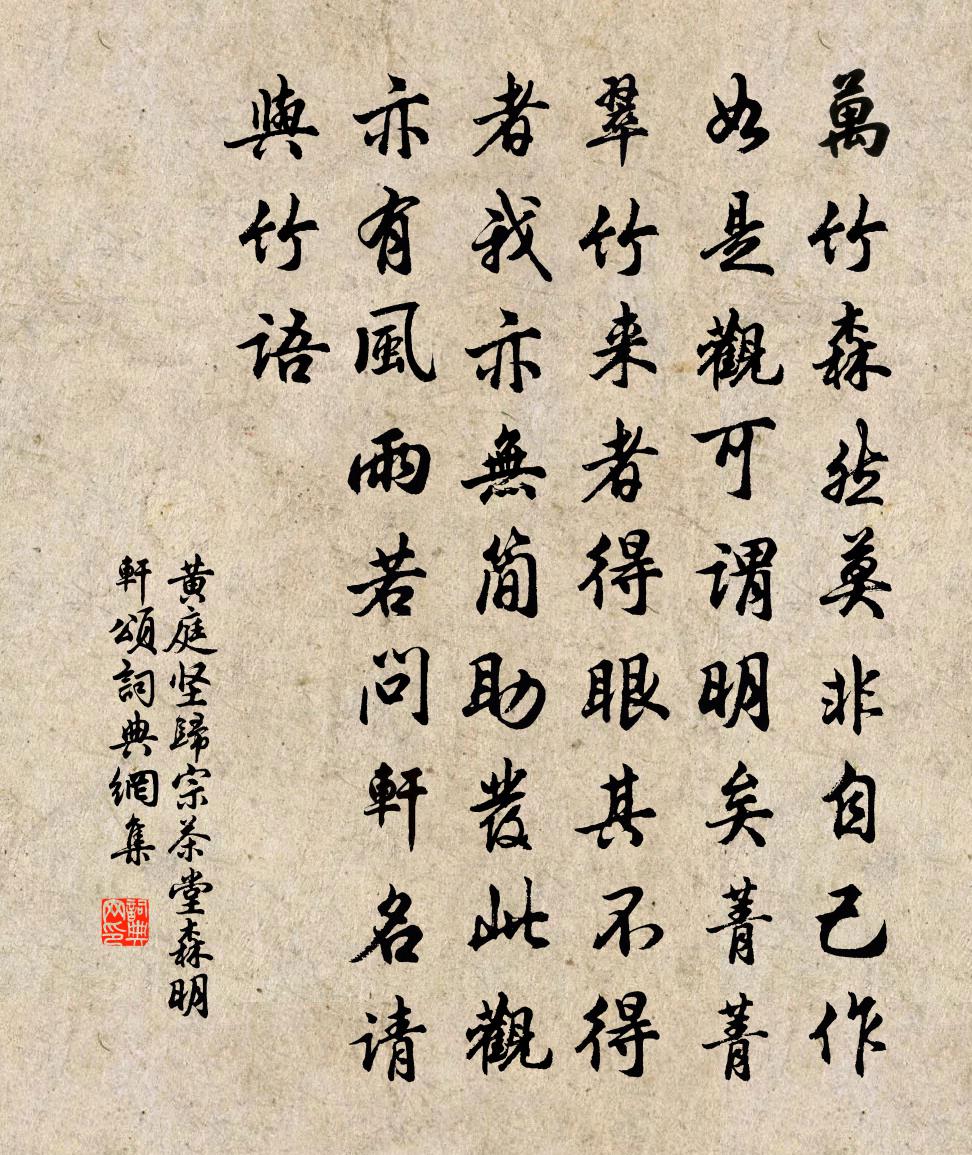 萬竹森然莫非自己作
如是觀可謂明矣菁菁
翠竹来者得眼其不得
者我亦無簡助發此觀
亦有風雨若问軒名请
與竹语
黄庭坚歸宗茶堂森明
軒頌詞典網集
詞典網印